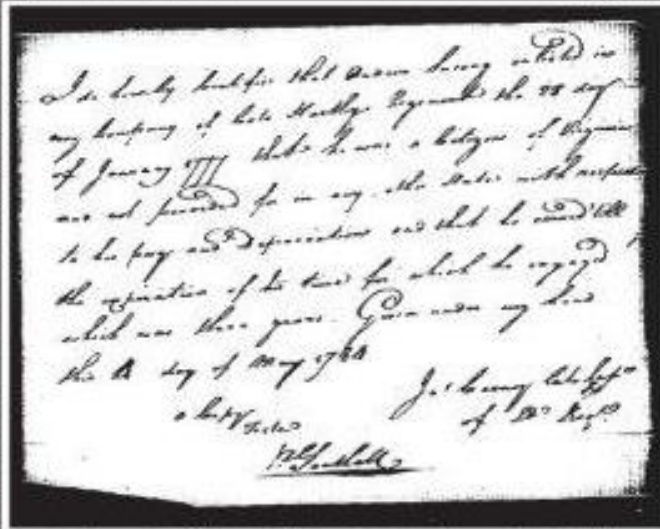 I do hereby Certifie that Andrew enlisted in
my Company of late Regiment the 28 day
of January 1777 that he was a Citizen of Virginia
was not provided for in any other State with respect
to his pay and depreciation and that he served till
the expiration of the time for which he engaged
which was three years. Given under my hand
this day of May 1784
Jas late Capt
a Copy of Do Regt
Teste